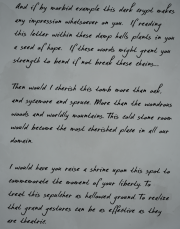 And if by morbid example this dark crypt makes
any impression whatsoever on you. If reading
this letter within these damp halls plants in you
a seed of hope. If these words might grant you
strength to bend if not break these chains...
Then would I cherish this tomb more than oak,
and sycamore and spruce. More than the wondrous
woods and worldly mountains. This cold stone room
would become the most cherished place in all our
domain.
I would have you raise a shrine upon this spot to
commemorate the moment of your liberty. To
treat this sepulcher as hallowed ground. To realize
that grand gestures can be as effective as they
are theatric.